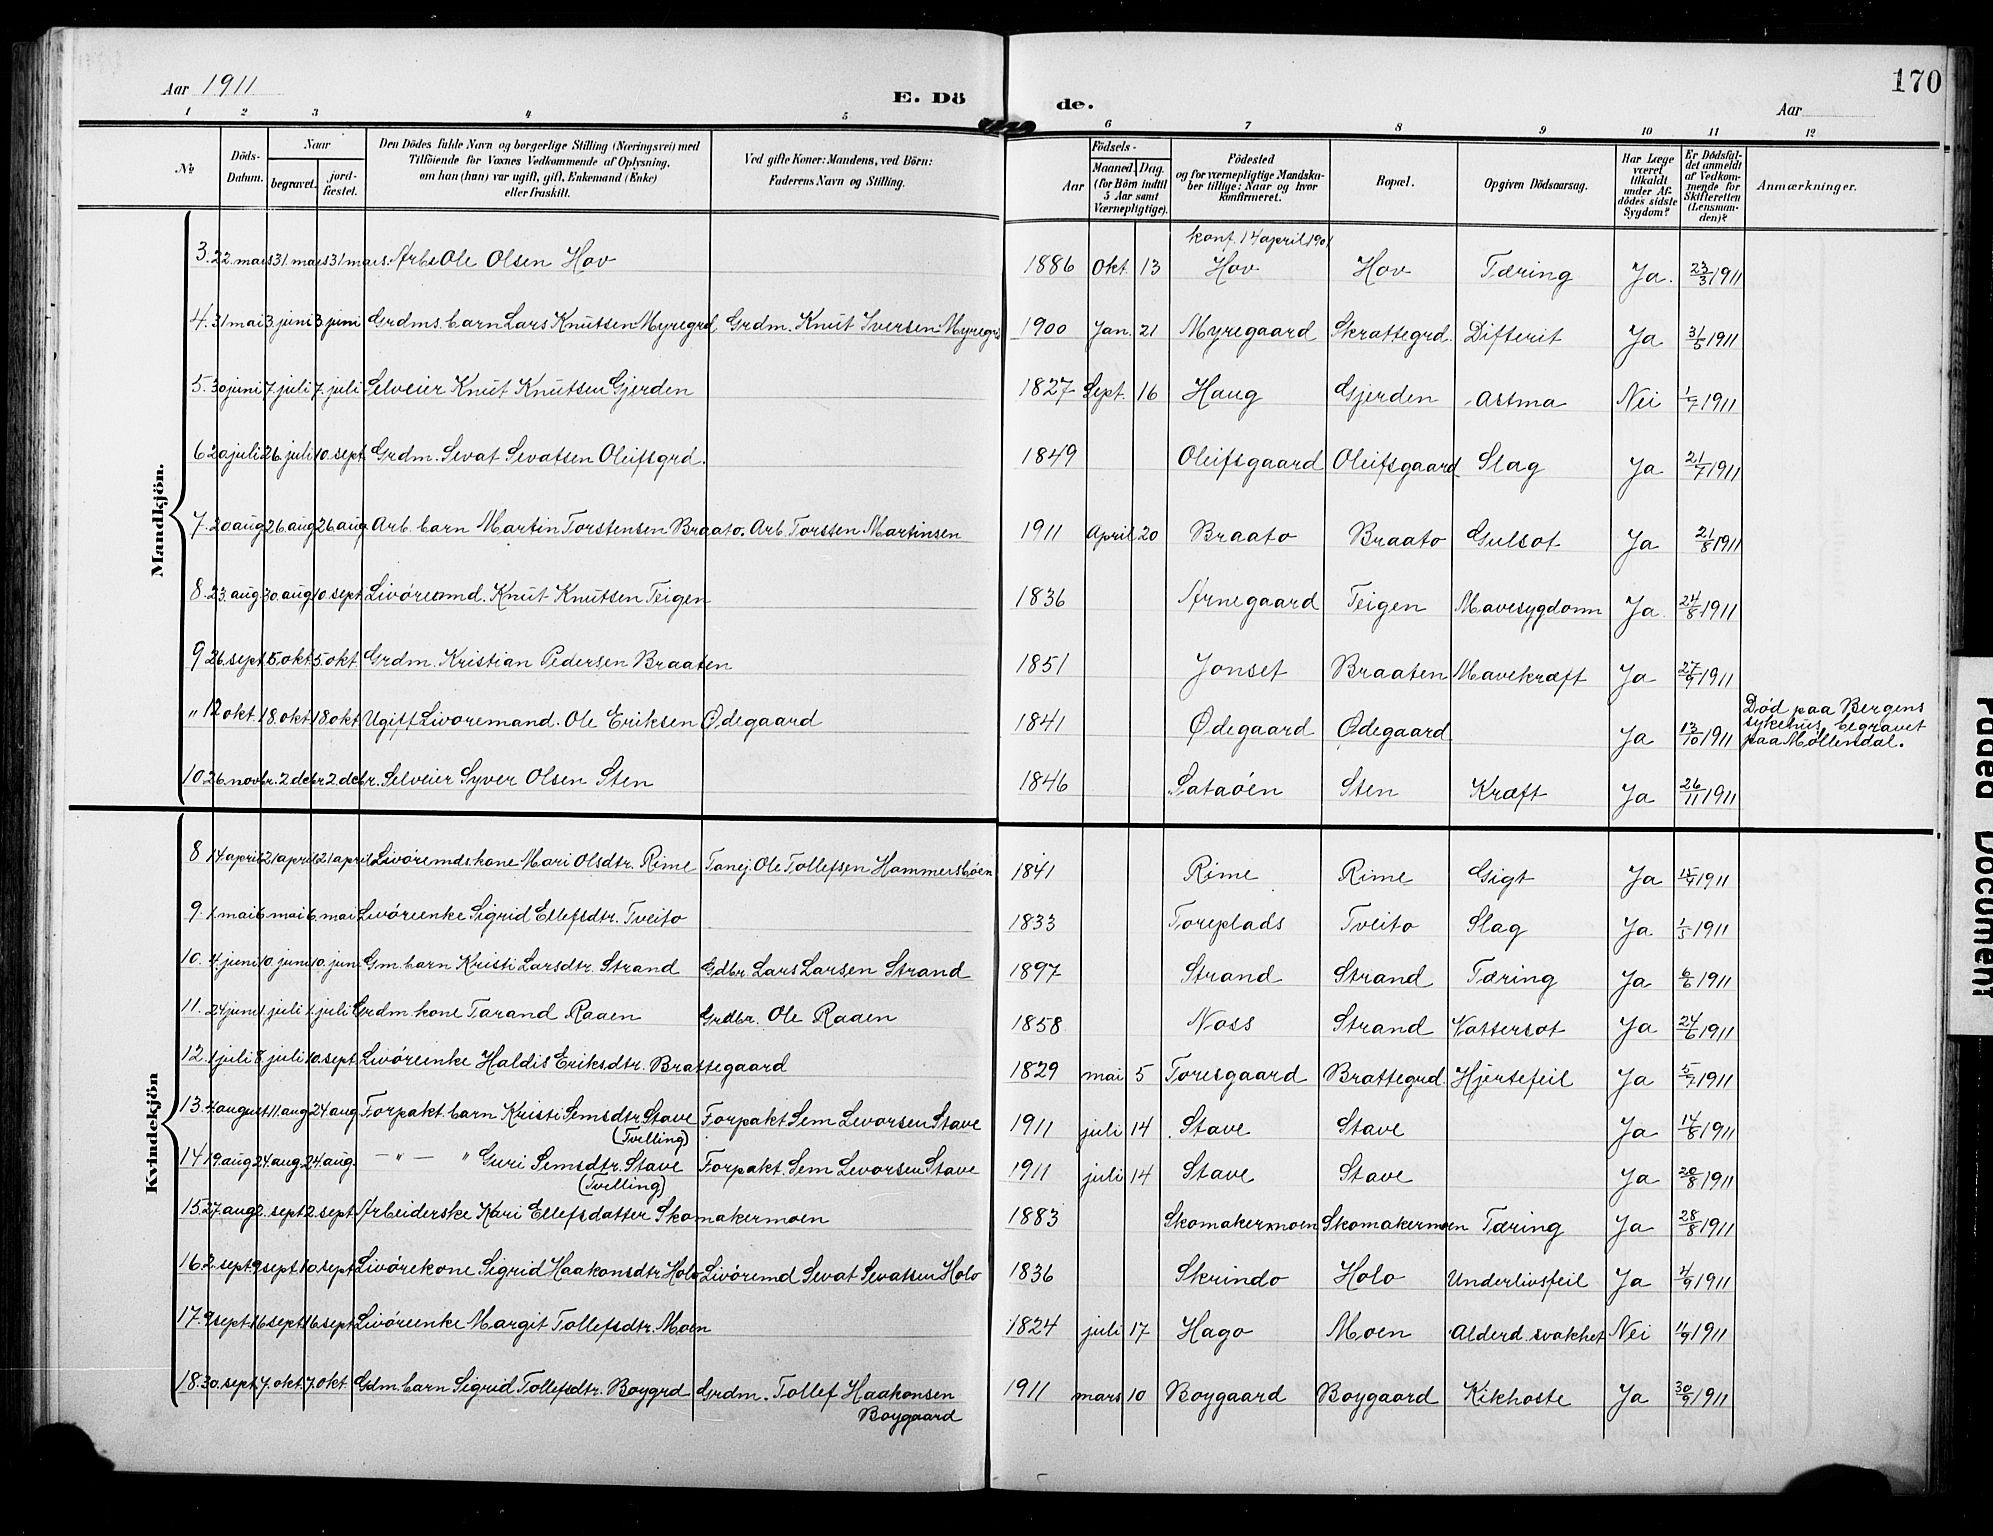 170
Aar 1911
E. Dö de.
Aar
1 2 3 4 5 6 7 8 9 10 11 12
No
Döds-Datum.
Naar
begravet.
jord-fæstet.
Den Dödes fulde Navn og borgerlige Stilling (Næringsvei) med
Tilföiende for Voxnes Vedkommende af Oplysning,
om han (hun) var ugift, gift, Enkemand (Enke)
eller fraskilt.
Ved gifte Koner: Mandens, ved Börn:
Faderens Navn og Stilling.
Födsels-
Aar
Maaned. Dag.
(for Börn indtil
5 Aar samt
Værnepligtige).
Födested
og for værnepligtige Mandska-
ber tillige: Naar og hvor
konfirmeret.
Bopæl.
Opgiven Dödsaarsag.
Har Læge
været
tilkaldt
under Af-
dödes sidste
Sygdom?
Er Dödsfal-
det anmeldt
af Vedkom-
mende for
Skifteretten
(Lensman-
den)?
Anmærkninger.
Mandkjön.
konf. 14 april 1901
3. 22 mars 31 mars 31 mars. Arb. Ole Olsen Hov 1886 Okt. 13 Hov Hov Tæring Ja. 23/3 1911
4. 31 mai 3. juni 3. juni Grdms. barn Lars Knutsen Myregrd. Grdm. Knut Iversen Myregrd 1900 Jan. 21 Myregaard Skrattegrd. Difterit Ja 31/5 1911
5. 30 juni 7. juli 7. juli Selveier Knut Knutsen Gjerden 1827 Sept. 16 Haug Gjerden Astma Nei 1/7 1911
6 20 juli 26. juli 10. sept. Grdm. Sevat Sevatsen Oleifsgrd. 1849 Oleifsgaard Oleifsgaard Slag Ja 21/7 1911
7. 20 aug 26 aug 26 aug. Arb. barn Martin Torstensen Braato. Arb. Torsten Martinsen 1911 April 20 Braato Braato Gulsot Ja 21/8 1911
8. 23. aug. 30. aug 10. sept. Livöremd. Knut Knutsen Teigen 1836 Arnegaard Teigen Mavesygdom Ja. 24/8 1911
9 26. sept. 5. okt. 5. okt. Grdm. Kristian Pedersen Braaten 1851 Jonset Braaten Mavekræft Ja 27/9 1911
" 12 okt. 18. okt. 18. okt. Ugift Livoremand. Ole Eriksen Ødegaard 1841 Ødegaard Ødegaard Ja 13/10 1911 Död paa Bergens
sykehus, begravet
paa Möllendal.
10. 26. novbr. 2 debr 2 debr. Selveier Syver Olsen Sten 1846 Sataöen Sten Kræft Ja 26/11 1911
Kvindekjön
8 14 april 21 april 21 april Livöremds. kone Mari Olsdtr. Rime Ole Tollefsen Hammersböen 1841 Rime Rime Gigt Ja 15/4 1911
9. 1. mai 6. mai 6. mai Livöreenke Sigrid Ellefsdtr. Tveito 1833 Toreplads Tveito Slag Ja. 1/5 1911
10. 4. juni 10. juni 10. juni. Gm. barn Kristi Larsdtr. Strand Gdbr. Lars Larsen Strand 1897 Strand Strand Tæring Ja 6/6 1911
11. 24 juni 1. juli 1. juli Grdm. kone Tarand Raaen Grdbr. Ole Raaen 1858 Noss Strand Vattersot Ja 24/6 1911
12. 1 juli 8. juli 10. sept. Livöreenke Haldis Eriksdtr. Brattegaard 1829 mai 5 Toresgaard Brattegrd. Hjertefeil Ja 5/7 1911
13. august 11. aug 24 aug. Forpakt. barn Kristi Semsdtr. Stave Forpakt Sem Levorsen Stave 1911 juli 14 Stave Stave Ja 14/8 1911
(Tvilling)
14 19. aug 24. aug. 24. aug. — " — " Guri Semsdtr. Stave Forpakt. Sem Levorsen Stave 1911 juli 14 Stave Stave Ja 20/8 1911
(Tvilling)
15. 27. aug 2. sept 2. sept. Arbeiderske Kari Ellefsdatter Skomakermoen 1883 Skomakermoen Skomakermoen Tæring Ja 28/8 1911
16. 2. sept. 9 sept. 10 sept. Livörekone Sigrid Haakonsdtr. Holo Livöremd Sevat Sevatsen Holo 1836 Skrindo Holo Underlivsfeil Ja 4/9 1911
17. 9 sept. 16 sept. 16 sept. Livöreenke Margit Tollefsdtr. Moen 1824 juli 17 Hago Moen Alderd. svakhet Nei 11/9 1911
18. 30. sept. 7. okt. 7. okt. Gdm. barn Sigrid Tollefsdtr. Boygrd Grdm. Tollef Haakonsen 1911 mars 10 Boygaard Boygaard Kikhoste Ja 30/9 1911
Boygaard
Faded Document